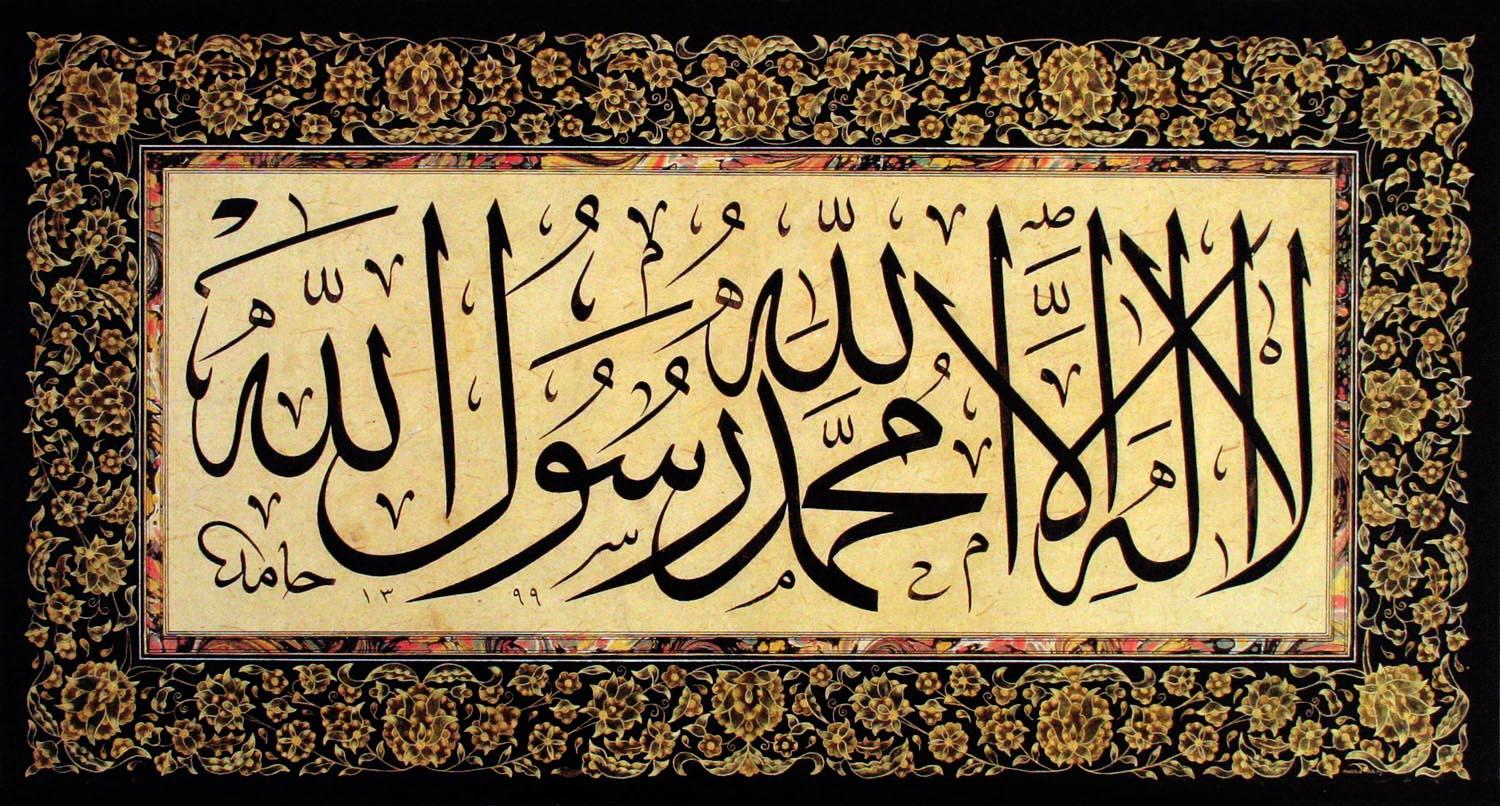 لَا إِلٰهَ إِلَّا اللّٰهُ مُحَمَّدٌ رَسُولُ اللّٰهِ
حامد
١٣٩٩